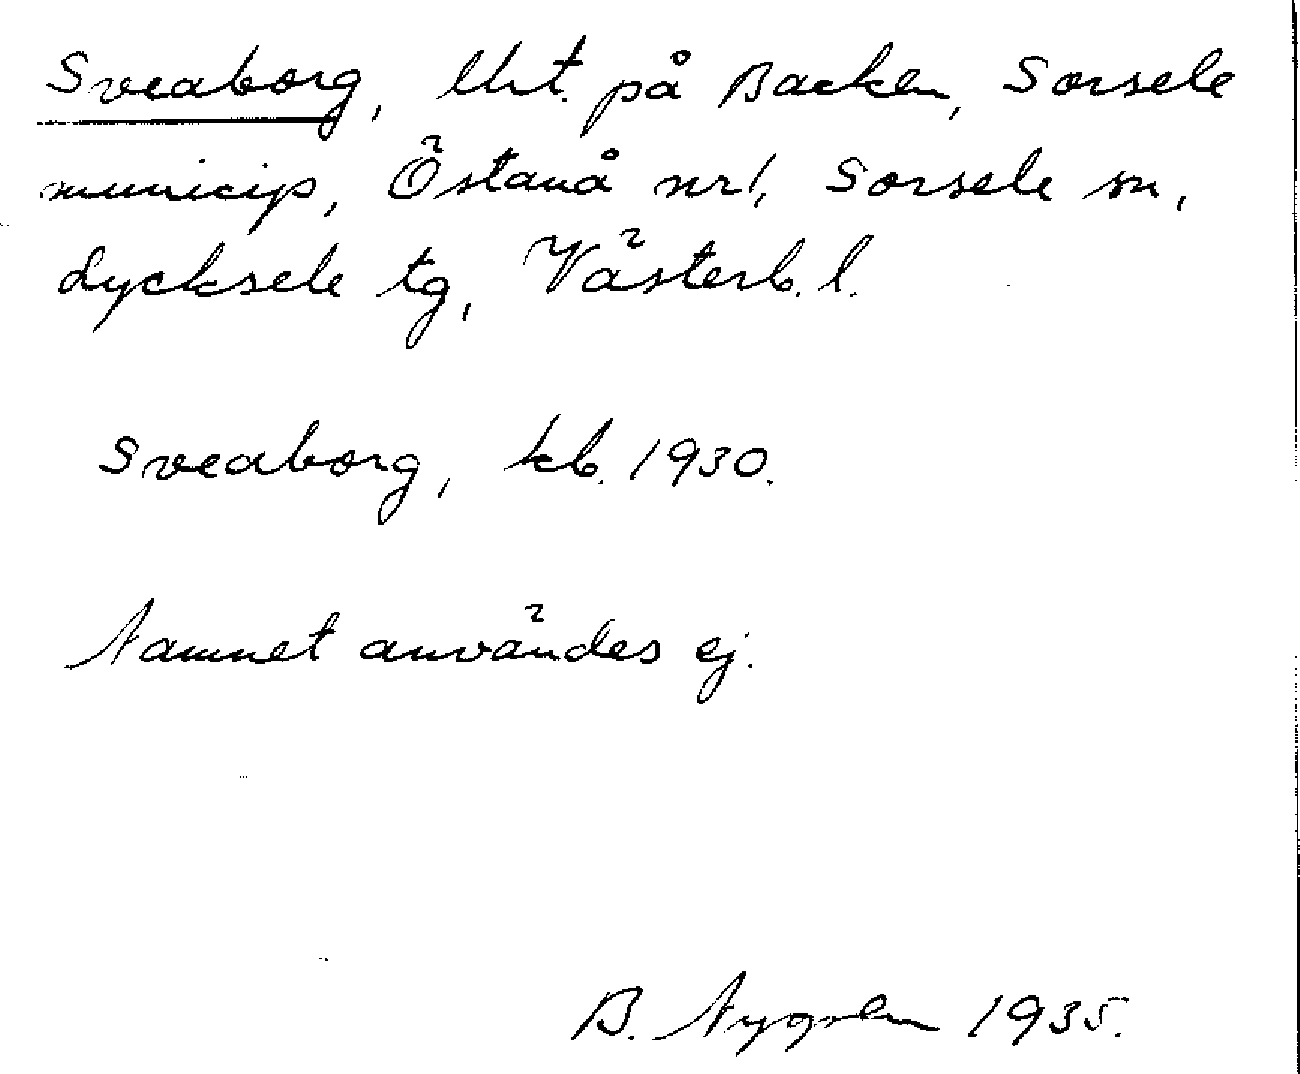 Sveaborg, lht. på Backen, Sorsele
municip, Östanå nr 1, Sorsele sn,
Lycksele tg, Västerb. l.
Sveaborg, kb. 1930.
Namnet användes ej.
B. 1935.